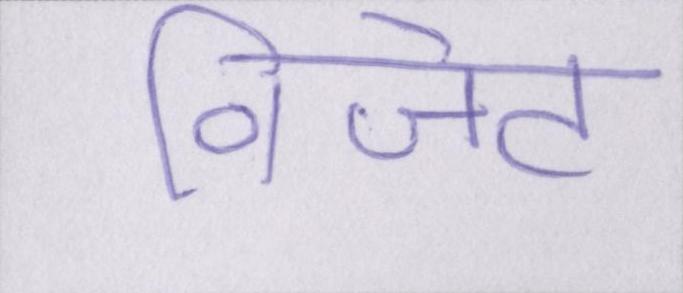 विजेट